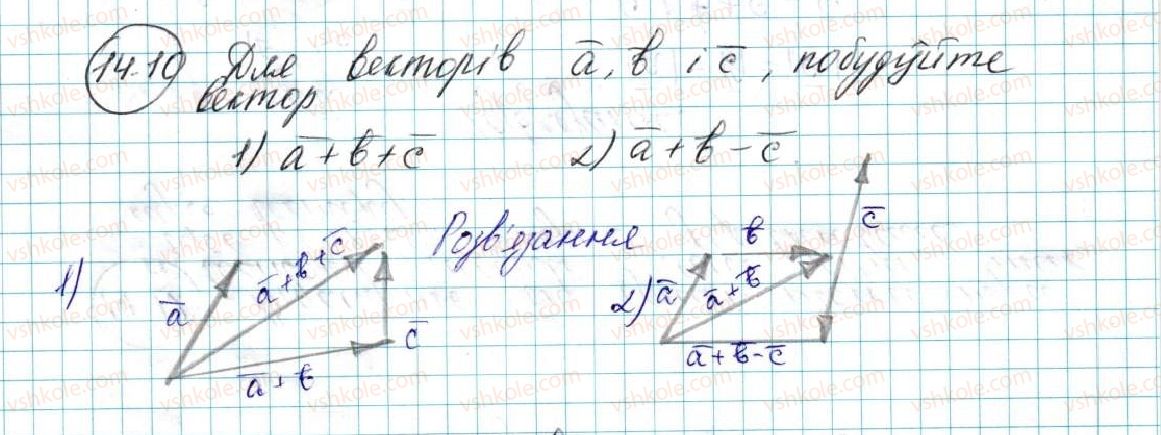 14.10 Для векторів a̅, b̅ і c̅, побудуйте
вектор
1) a̅ + b̅ + c̅ 2) a̅ + b̅ − c̅
Розв'язання
1)
a̅
a̅ + b̅ + c̅
a̅ + b̅
c̅
2)
a̅
b̅
a̅ + b̅
c̅
a̅ + b̅ − c̅
vshkole.com